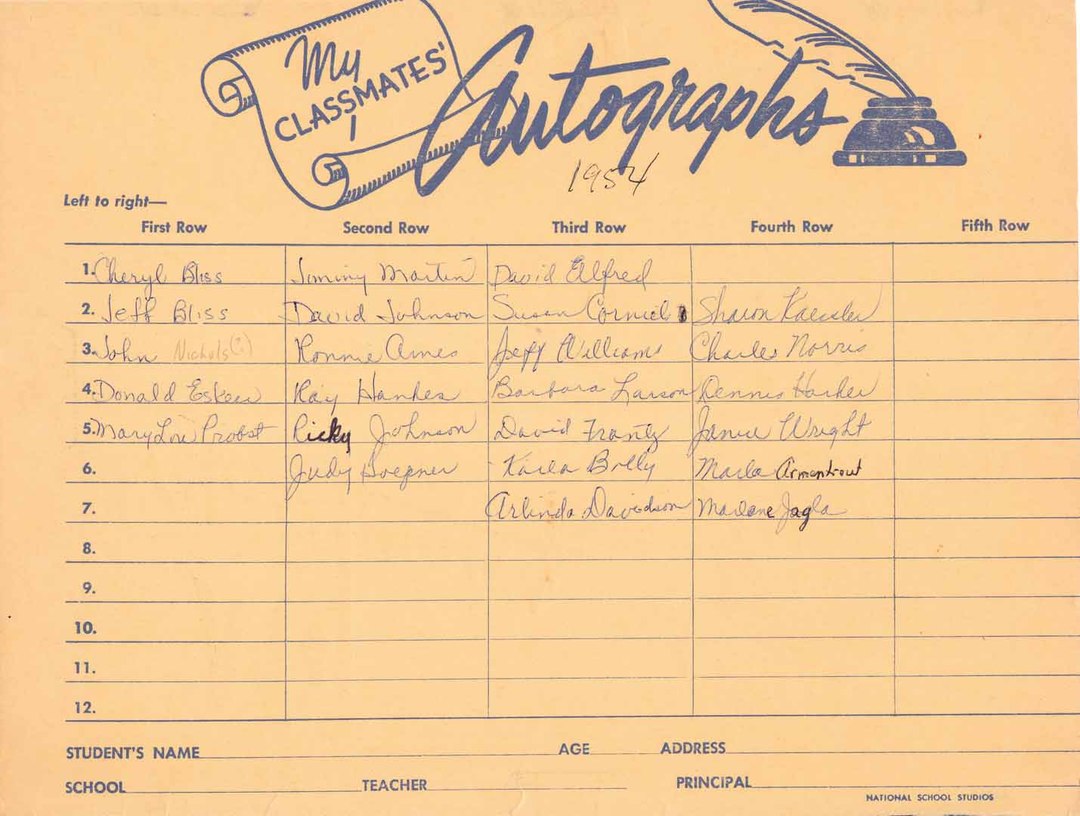 My
CLASSMATES'
Autographs
1954
Left to right—
First Row Second Row Third Row Fourth Row Fifth Row
1. Cheryl Bliss Jimmy Martin David Ellfred
2. Jeff Bliss David Johnson Susan Corniel Sharon Kaessler
3. John Nichols(?) Ronnie Ames Jeff Williams Charles Norris
4. Donald Eskew Ray Hankes Barbara Larson Dennis Harker
5. Mary Lou Probst Ricky Johnson David Frantz Janice Wright
6. Judy Karla Bolly Marla Armentrout
7. Arlinda Davidson Marlene Jagla
8.
9.
10.
11.
12.
STUDENT'S NAME AGE ADDRESS
SCHOOL TEACHER PRINCIPAL
NATIONAL SCHOOL STUDIOS